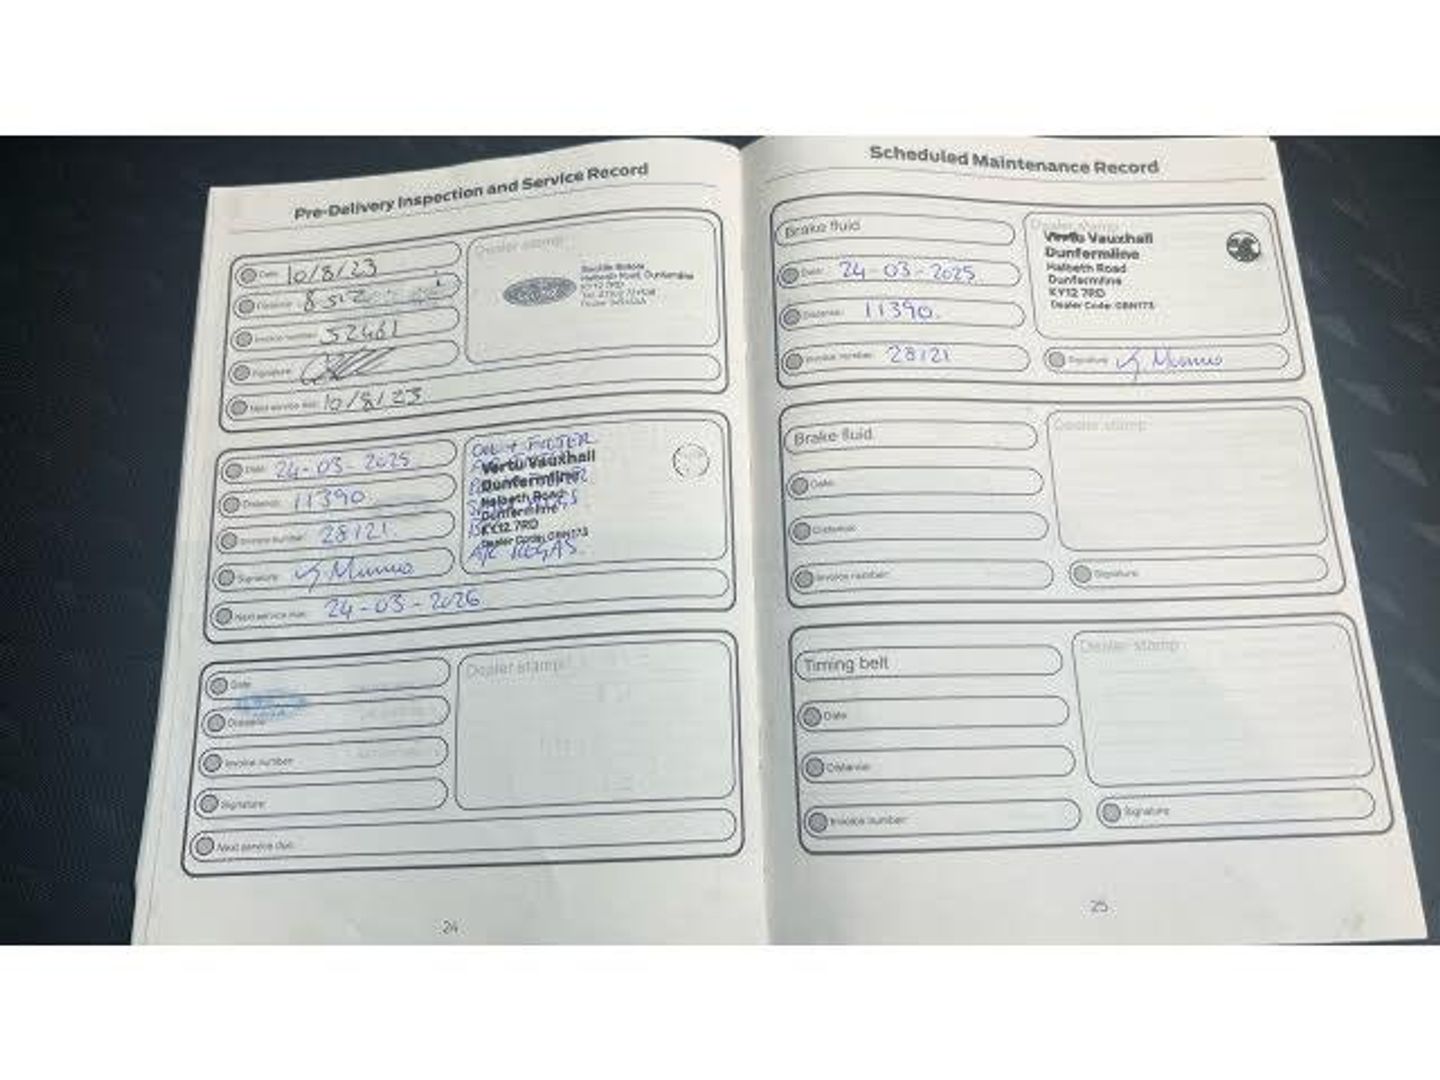 Pre-Delivery Inspection and Service Record
Date: 10/8/23
Distance: 8512
Invoice number: 52461
Signature:
Next service due: 10/8/23
Dealer stamp
Halbeath Road, Dunfermline
KY12 7RD
Date: 24-03-2025
Distance: 11390
Invoice number: 28121.
Signature: Munro
Next service due: 24-03-2026
OIL + FILTER
Vertu Vauxhall
Dunfermline
Halbeth Road
Dunfermline
KY12 7RD
Dealer Code: GBN173
A/C REGAS.
Date
Distance
Invoice number:
Signature:
Next service due:
Dealer stamp
24
Scheduled Maintenance Record
Brake fluid
Date: 24-03-2025.
Distance: 11390.
Invoice number: 28121
Dealer stamp
Vertu Vauxhall
Dunfermline
Halbeth Road
Dunfermline
KY12 7RD
Dealer Code: GBN173
Signature: Munro
Brake fluid
Date:
Distance:
Invoice number:
Dealer stamp
Signature:
Timing belt
Date
Distance:
Invoice number:
Dealer stamp
Signature
25